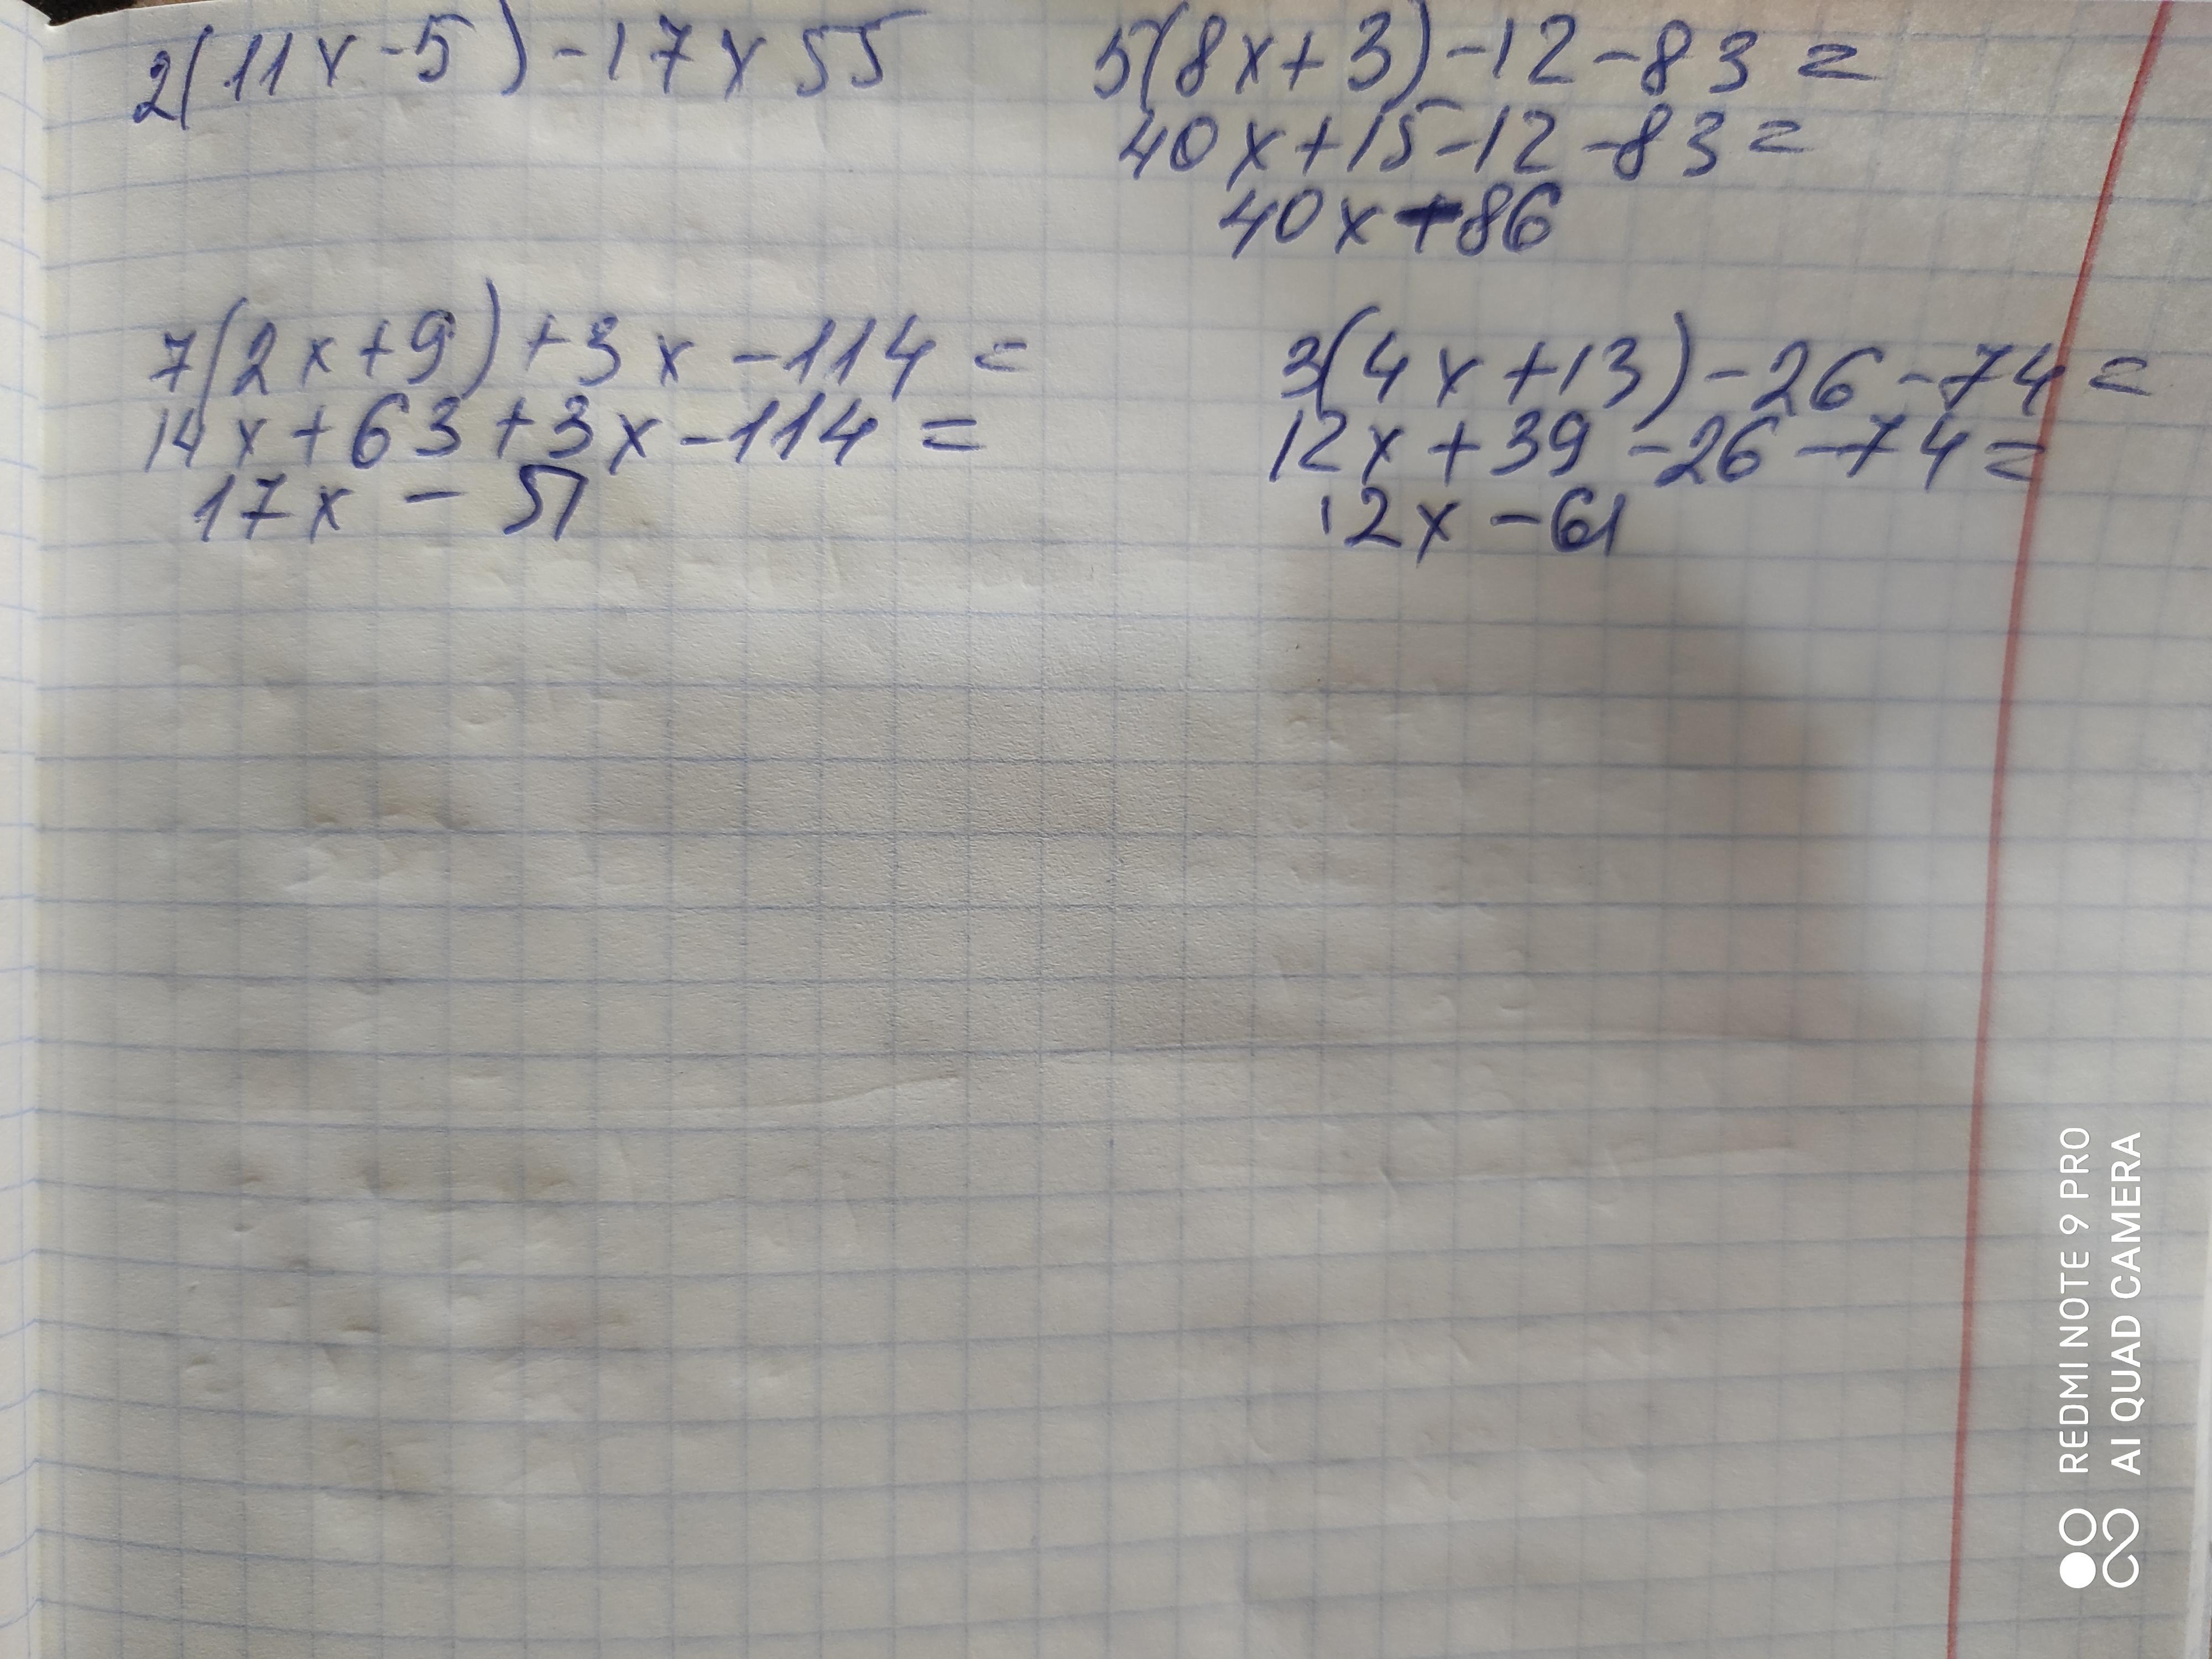 2(11x-5)-17x55
5(8x+3)-12-83=
40x+15-12-83=
40x-86
7(2x+9)+3x-114=
14x+63+3x-114=
17x-51
3(4x+13)-26-74=
12x+39-26-74=
12x-61
REDMI NOTE 9 PRO
AI QUAD CAMERA